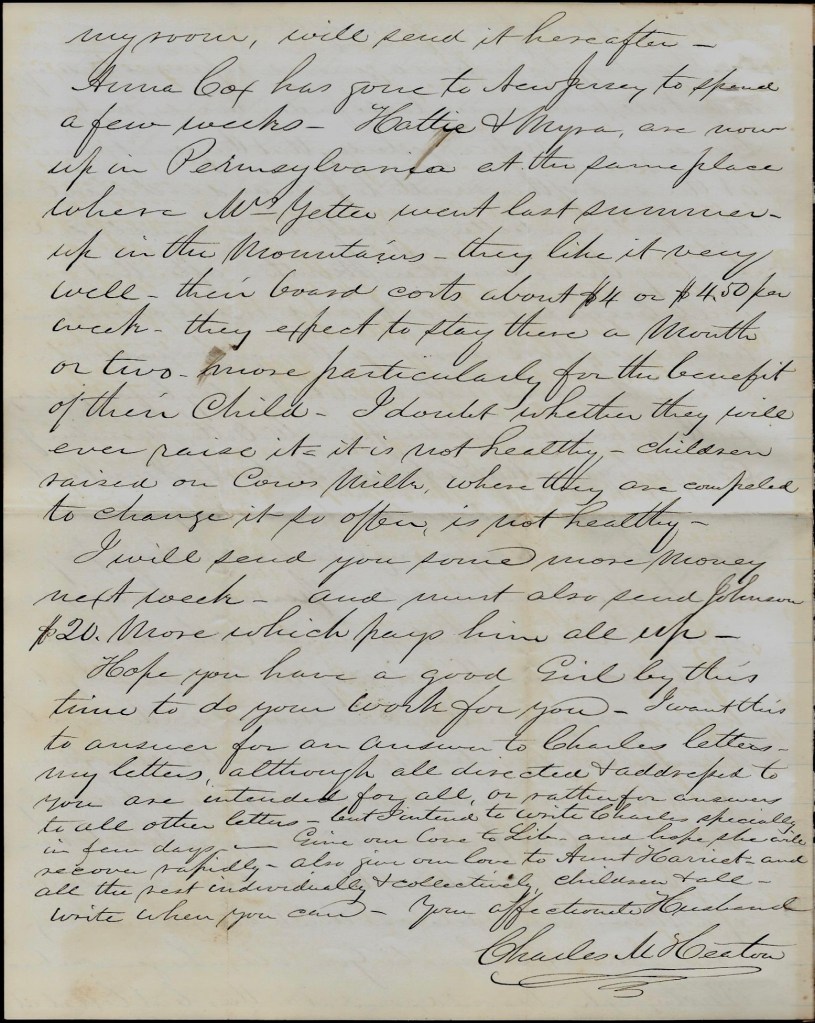 my room, will send it hereafter –
Anna Cox has gone to New Jersey to spend
a few weeks – Hattie & Myra, are now
up in Pennsylvania at the same place
where Mrs Yetter went last summer –
up in the Mountains – they like it very
well – their board costs about $4 or $4.50 per
week – they expect to stay there a Month
or two – more particularly for the benefit
of their Child – I doubt whether they will
ever raise it – it is not healthy – children
raised on Cows Milk, where they are compeled
to change it so often, is not healthy –
I will send you some more money
next week – and must also send Johnson
$20. More which pays him all up –
Hope you have a good Girl by this
time to do your work for you – I want this
to answer for an answer to Charles letters –
my letters, although all directed & addressed to
you are intended for all, or rather for answers
to all other letters – but I intend to write Charles specially
in few days – Give our love to Lib – and hope she will
recover rapidly – also give our love to Aunt Harriet – and
all the rest individually & collectively, children & all –
write when you can – Your affectionate Husband
Charles M Heaton